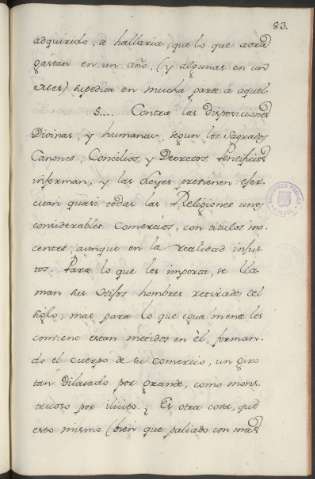 83.
adquirido, o hallaria, que lo que aora
gastan en un año, (y algunas en un
mes) supedia en mucha parte á aquel.
5.... Contra las disposiciones
Divinas, y humanas, segun los Sagrados
Canones, Concilios, y Decretos Pontificios
informan, y las Leyes previenen exer-
citan quasi todas las Religiones unos
considerables Comercios, con titulos ino-
centes, aunque en la realidad injus-
tos. Para lo que les importa, se lla-
man sus hombres retirados del
siglo; mas para lo que igualmente les
combiene estan metidos en èl, forman-
do el cuerpo de su Comercio, un giro
tan dilatado por grande, como mons-
truoso por ilicito. Es otra cosa, que
esto mismo (bien que paliado con mas